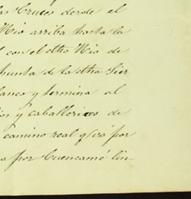 las Cruces desde el
Rio arriba hasta la
l con el otro Rio de
hunta de la otra Sier
lanca y termina al
ios y caballerizo de
camino real q.e va por
a por Cuencamé lin